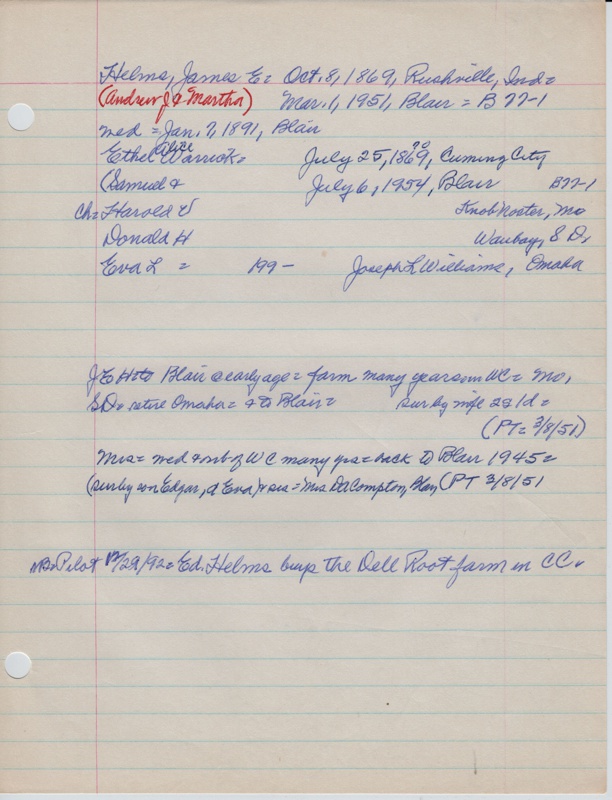 Helms, James E = Oct. 8, 1869, Rushville, Ind =
(Andrew J & Martha) Mar. 1, 1951, Blair = B 77-1
med = Jan. 7, 1891, Blair
Ethel Alize Warrick = July 25, 1869, 70 Cuming City
(Samuel & July 6, 1954, Blair B 77-1
Ch = Harold V Knob Noster, Mo
Donald H Waubay, S D,
Eva L = 199 - Joseph L Williams, Omaha
J E H to Blair @ early age = farm many years in WC = Mo,
S D = retire Omaha = & to Blair = sur by wife 2s 1d =
(PT = 3/8/51)
Mrs = med & mb of WC many yrs = back to Blair 1945 =
(sur by son Edgar, d Eva) & sis = Mrs DA Compton, Blair (PT 3/8/51
Pilot 12/29/92 = Ed. Helms buys the Dell Root farm in CC.